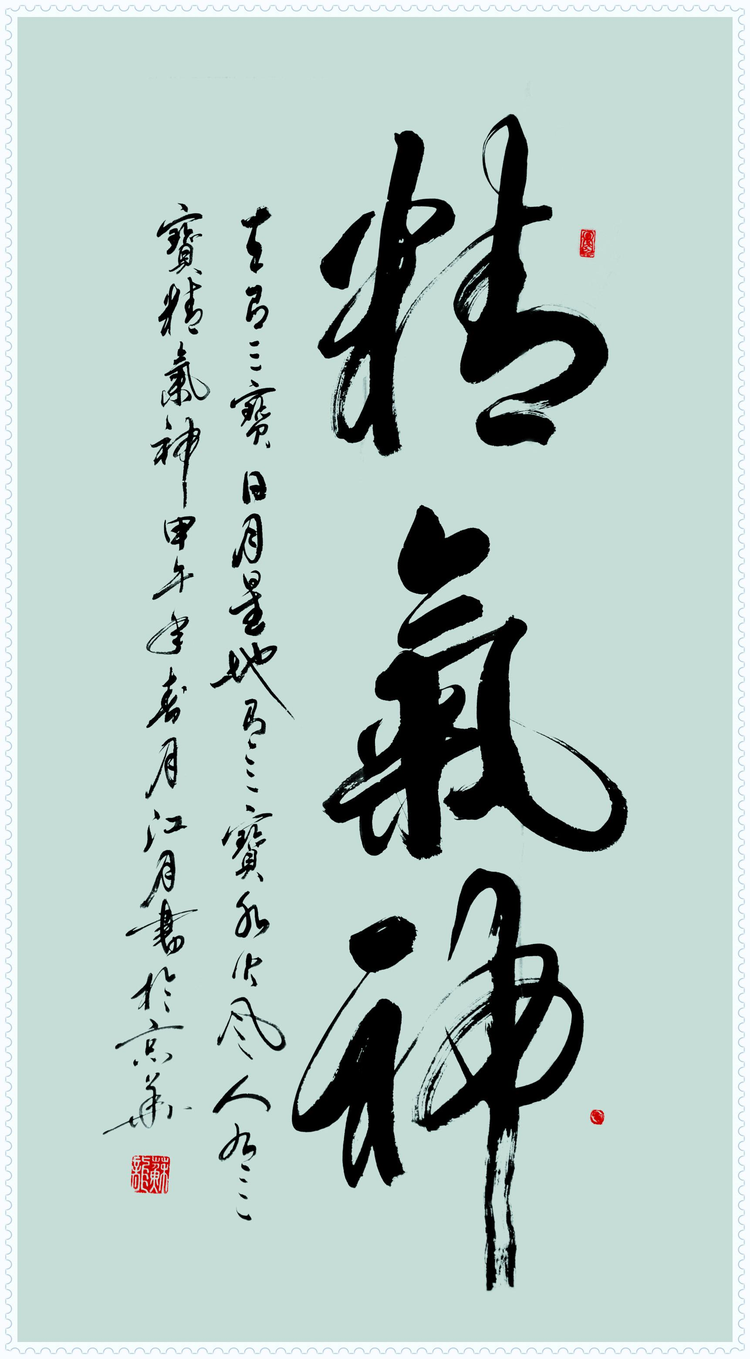 精氣神
天有三寶日月星地有三寶水火風人有三
寶精氣神甲午年春月江月書於京華
蘇龍